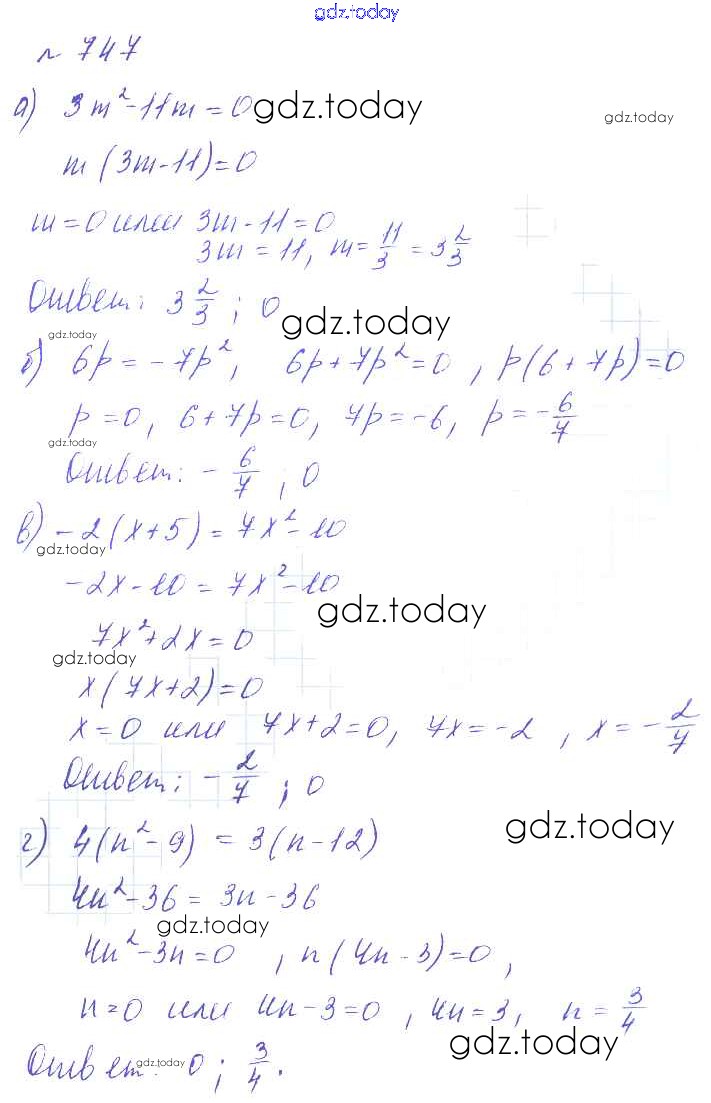 gdz.today
№ 747
а) 3m²-11m=0 gdz.today gdz.today
m(3m-11)=0
m=0 или 3m-11=0
3m=11, m=11/3=3 2/3
Ответ: 3 2/3; 0 gdz.today
gdz.today
б) 6p=-7p², 6p+7p²=0, p(6+7p)=0
p=0, 6+7p=0, 7p=-6, p=-6/7
gdz.today
Ответ: -6/7; 0
в) -2(x+5)=7x²-10
gdz.today
-2x-10=7x²-10
gdz.today
7x²+2x=0
gdz.today
x(7x+2)=0
x=0 или 7x+2=0, 7x=-2, x=-2/7
Ответ: -2/7; 0
gdz.today
г) 4(n²-9)=3(n-12)
4n²-36=3n-36
gdz.today
4n²-3n=0, n(4n-3)=0,
n=0 или 4n-3=0, 4n=3, n=3/4
gdz.today
Ответ: 0; 3/4.
gdz.today